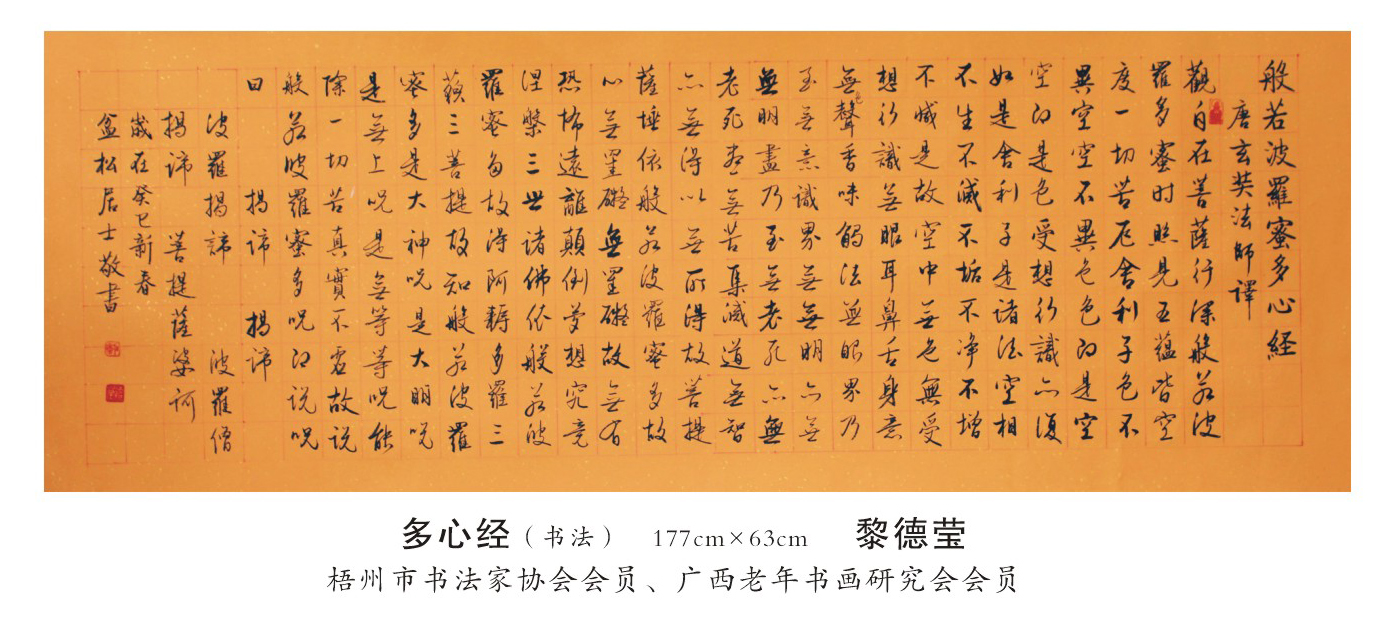 般若波羅蜜多心経
唐玄奘法師譯
觀自在菩薩行深般若波
羅多蜜时照見五蕴皆空
度一切苦厄舍利子色不
異空空不異色色即是空
空即是色受想行識亦復
如是舍利子是诸法空相
不生不滅不垢不净不增
不减是故空中無色無受
想行識無眼耳鼻舌身意
無色聲香味觸法無眼界乃
至無意识界無無明亦無
無明盡乃至無老死亦無
老死盡無苦集滅道無智
亦無得以無所得故菩提
薩埵依般若波羅蜜多故
心無罣礙無罣礙故無有
恐怖遠離顛倒夢想究竟
涅槃三世诸佛依般若波
羅蜜多故得阿耨多羅三
藐三菩提故知般若波羅
蜜多是大神咒是大明咒
是無上咒是無等等咒能
除一切苦真實不虚故说
般若波羅蜜多咒即说咒
曰 揭諦 揭諦
波羅揭諦 波羅僧
揭諦 菩提薩婆訶
歲在癸巳新春
盆松居士敬書
多心经（书法） 177cm×63cm 黎德莹
梧州市书法家协会会员、广西老年书画研究会会员